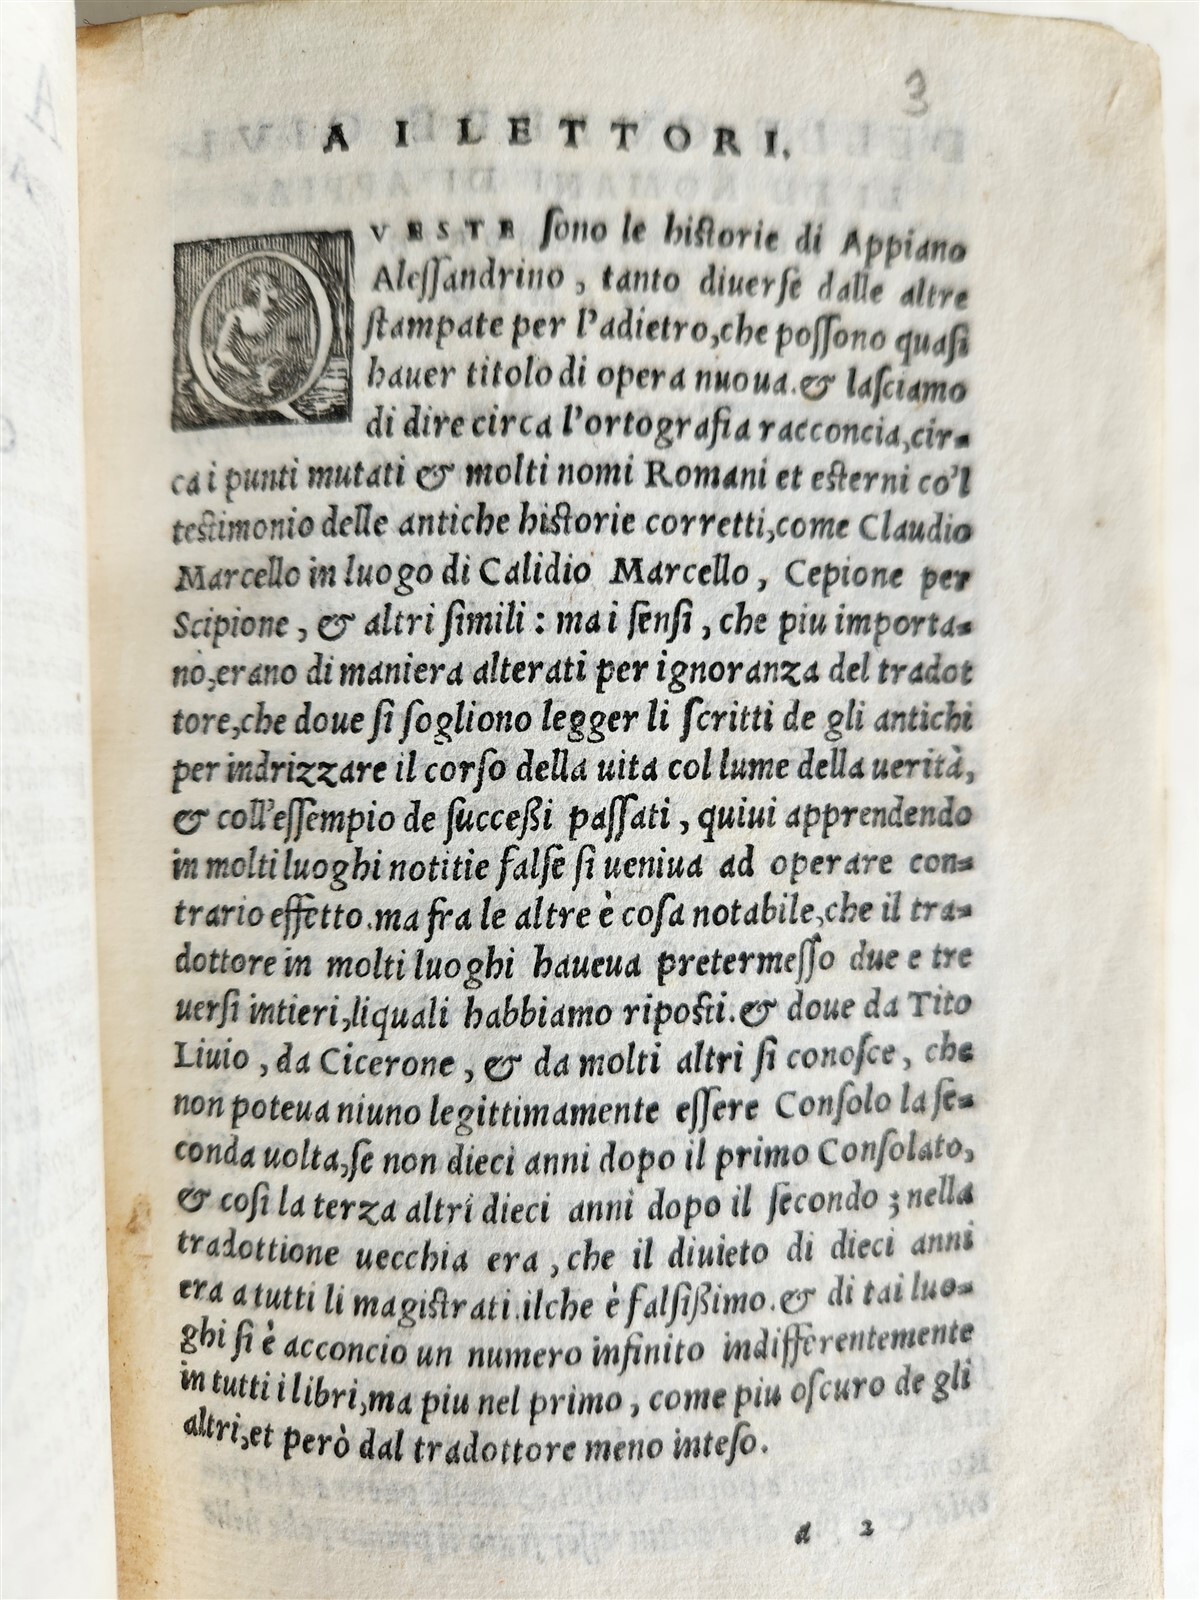 3
A I LETTORI.
QVESTE ſono le hiſtorie di Appiano
Aleſſandrino, tanto diuerſe dalle altre
ſtampate per l'adietro, che poſſono quaſi
hauer titolo di opera nuoua. & laſciamo
di dire circa l'ortografia racconcia, cir-
ca i punti mutati & molti nomi Romani et eſterni co'l
teſtimonio delle antiche hiſtorie corretti, come Claudio
Marcello in luogo di Calidio Marcello, Cepione per
Scipione, & altri ſimili: ma i ſenſi, che piu importa-
no, erano di maniera alterati per ignoranza del tradot
tore, che doue ſi ſogliono legger li ſcritti de gli antichi
per indrizzare il corſo della uita col lume della uerità,
& coll'eſſempio de ſucceßi paſſati, quiui apprendendo
in molti luoghi notitie falſe ſi ueniua ad operare con-
trario effetto. ma fra le altre è coſa notabile, che il tra-
dottore in molti luoghi haueua pretermeſſo due e tre
uerſi intieri, liquali habbiamo ripoſti. & doue da Tito
Liuio, da Cicerone, & da molti altri ſi conoſce, che
non poteua niuno legittimamente eſſere Conſolo la ſe-
conda uolta, ſe non dieci anni dopo il primo Conſolato,
& coſi la terza altri dieci anni dopo il ſecondo; nella
tradottione uecchia era, che il diuieto di dieci anni
era a tutti li magiſtrati. ilche è falſißimo. & di tai luo-
ghi ſi è acconcio un numero infinito indifferentemente
in tutti i libri, ma piu nel primo, come piu oſcuro de gli
altri, et però dal tradottore meno inteſo.
a 2